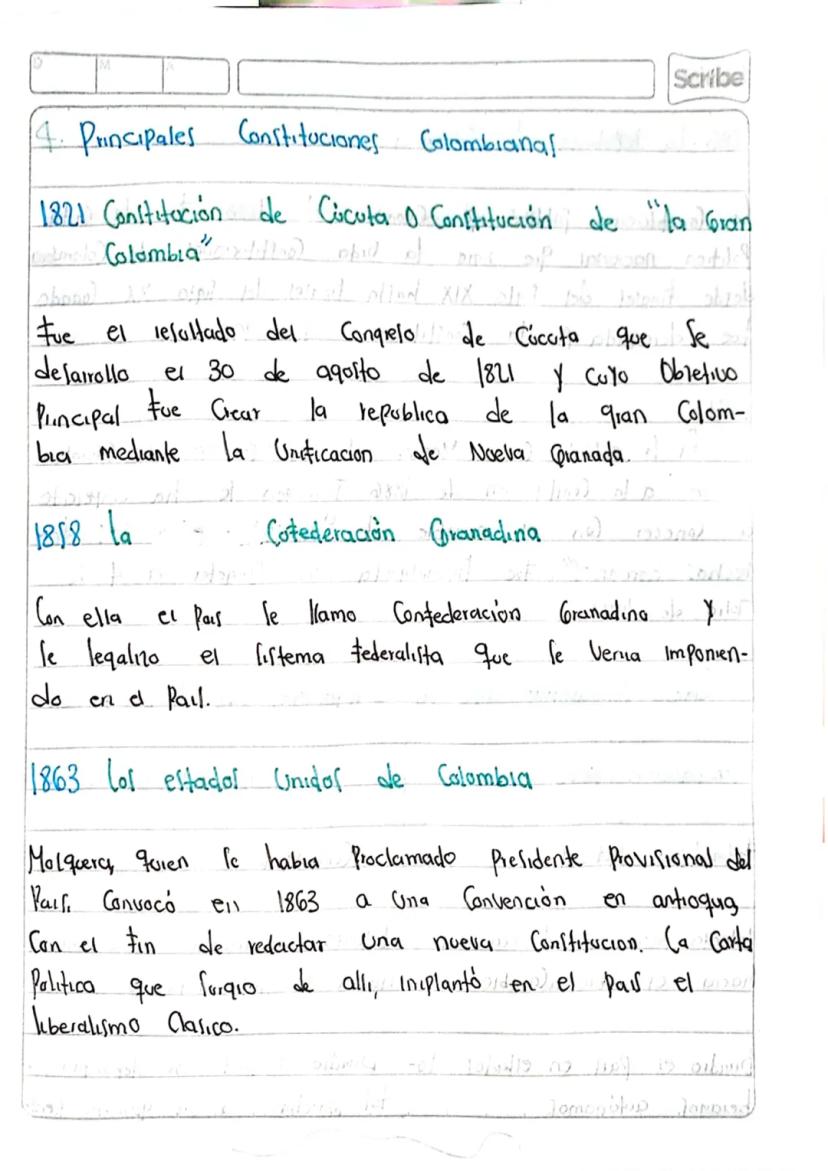 D M A
Scribe
4. Principales Constituciones Colombianas
1821 Constitución de Cúcuta O Constitución de "la Gran
Colombia"
fue el resultado del Congreso de Cúcuta que se
desarrollo el 30 de agosto de 1821 y cuyo Objetivo
Principal fue Crear la republica de la gran Colom-
bia mediante la Unificacion de Nueva Granada.
1858 la Cofederación Granadina
Con ella el Pais se llamo Confederación Granadina y
se legalizo el sistema federalista que se venia imponien-
do en el Pais.
1863 los estados Unidos de Colombia
Mosquera, quien se habia Proclamado Presidente Provisional del
Pais. Convocó en 1863 a una Convención en antioquia
Con el fin de redactar una nueva Constitucion. La Carta
Politica que surgio de alli, implantó en el pais el
liberalismo Clasico.